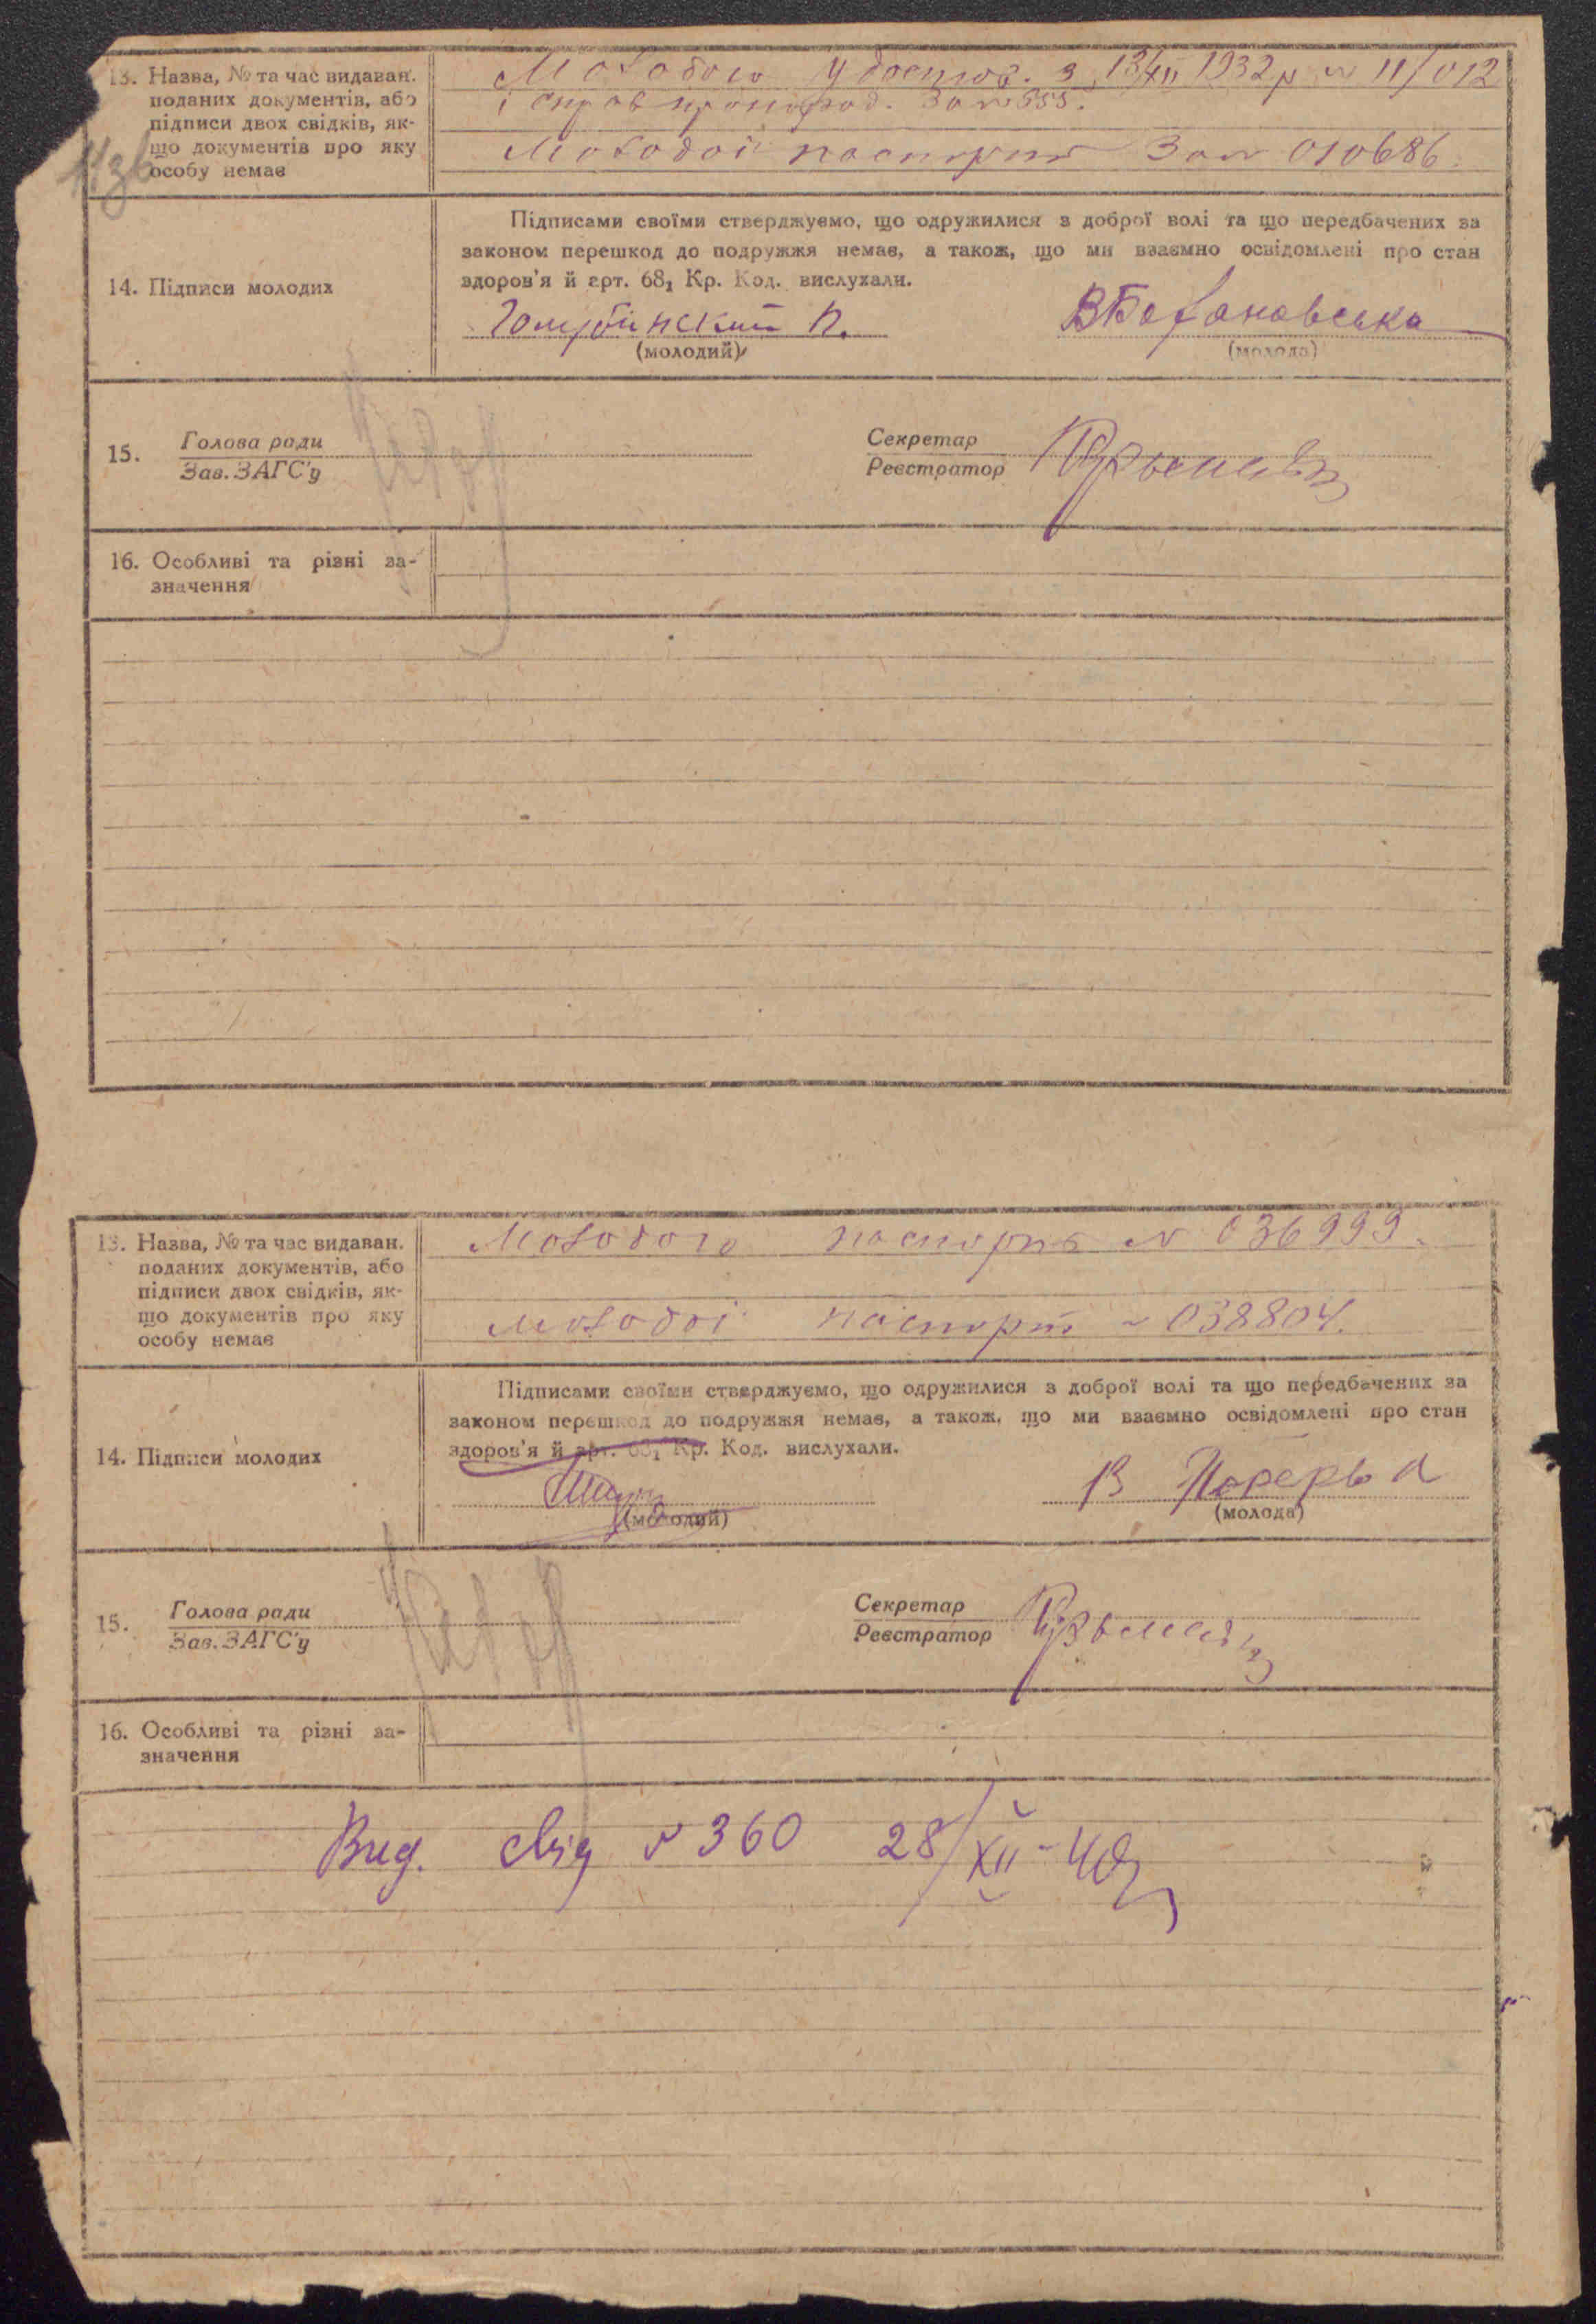 13. Назва, № та час видаван.
поданих документів, або
підписи двох свідків, як-
що документів про яку
особу немає
Молодого Удостов. з 13/XII 1932 р № 11/012
і справ
За № 555.
Молодої паспорт За № 010686.
14. Підписи молодих
Підписами своїми стверджуємо, що одружилися з доброї волі та що передбачених за
законом перешкод до подружжя немає, а також, що ми взаємно освідомлені про стан
здоров'я й арт. 68₁ Кр. Код. вислухали.
Голубинский П.
ВБалановська
(молодий)
(молода)
15.
Голова ради
Зав. ЗАГС'у
Секретар
Реєстратор
16. Особливі та різні за-
значення
13. Назва, № та час видаван.
поданих документів, або
підписи двох свідків, як-
що документів про яку
особу немає
Молодого паспорт № 036999.
Молодої паспорт № 038804.
14. Підписи молодих
Підписами своїми стверджуємо, що одружилися з доброї волі та що передбачених за
законом перешкод до подружжя немає, а також, що ми взаємно освідомлені про стан
здоров'я й арт. 68₁ Кр. Код. вислухали.
В
(молодий)
(молода)
15.
Голова ради
Зав. ЗАГС'у
Секретар
Реєстратор
16. Особливі та різні за-
значення
Вид. свід № 360 28/XII-40р